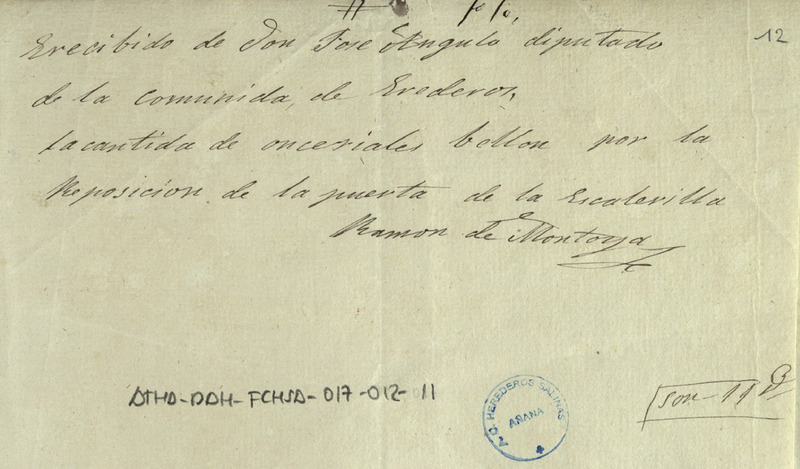 12
Erecibido de Don Jose Angulo diputado
de la comunida, de Erederos,
la cantida de onceriales bellon por la
Reposicion de la puerta de la Escalerilla
Ramon de Montoya
ATHA-DAH-FCHSA-017-012-11
HEREDEROS SALINAS
AÑANA
son-11 R